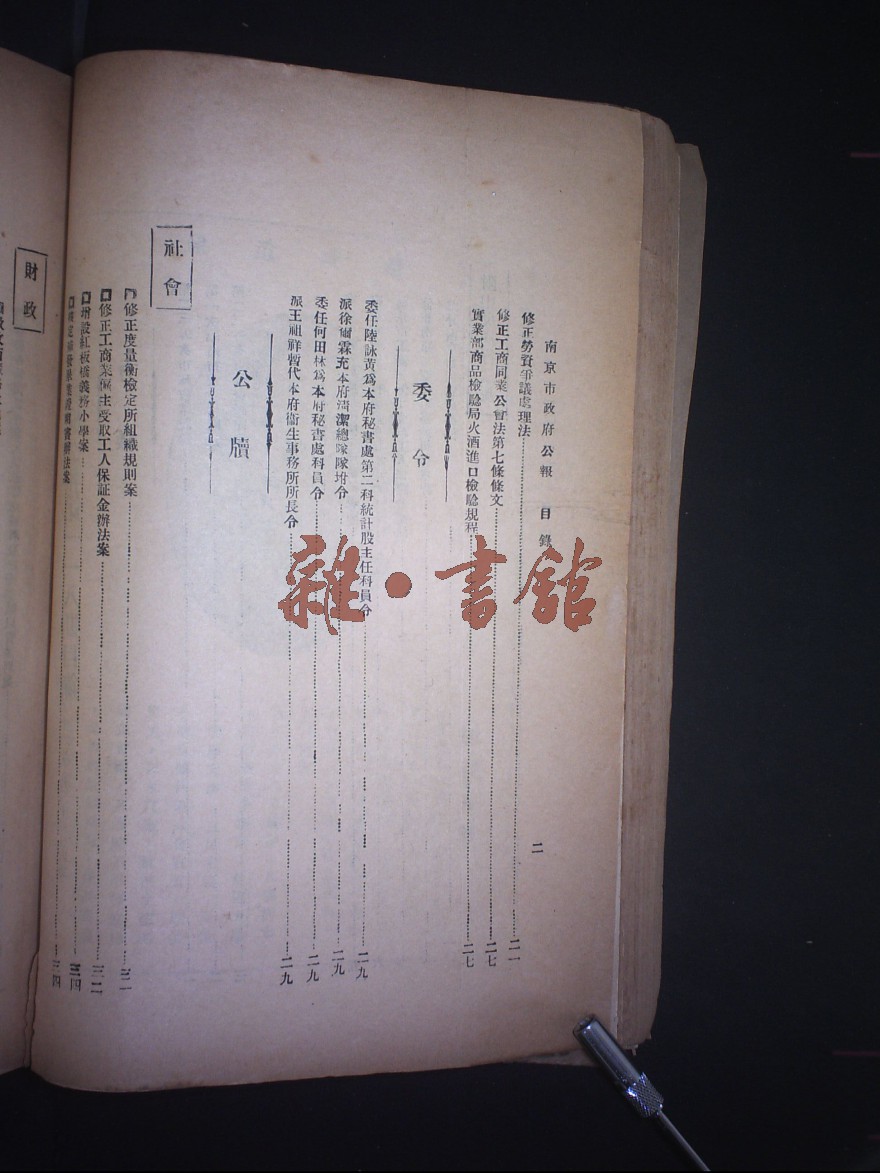 南京市政府公報 目錄 二
修正勞資爭議處理法 二一
修正工商同業公會法第七條條文 二七
實業部商品檢驗局火酒進口檢驗規程 二七
委令
委任陸詠黃爲本府秘書處第二科統計股主任科員令 二九
派徐爾霖充本府清潔總隊隊坿令 二九
委任何田林爲本府秘書處科員令 二九
派王祖祥暫代本府衞生事務所所長令 二九
公牘
社會
修正度量衡檢定所組織規則案
修正工商業僱主受取工人保証金辦法案 三二
增設紅板橋義務小學案 三四
發畢業證明書辦法案 三四
財政
雜·書館